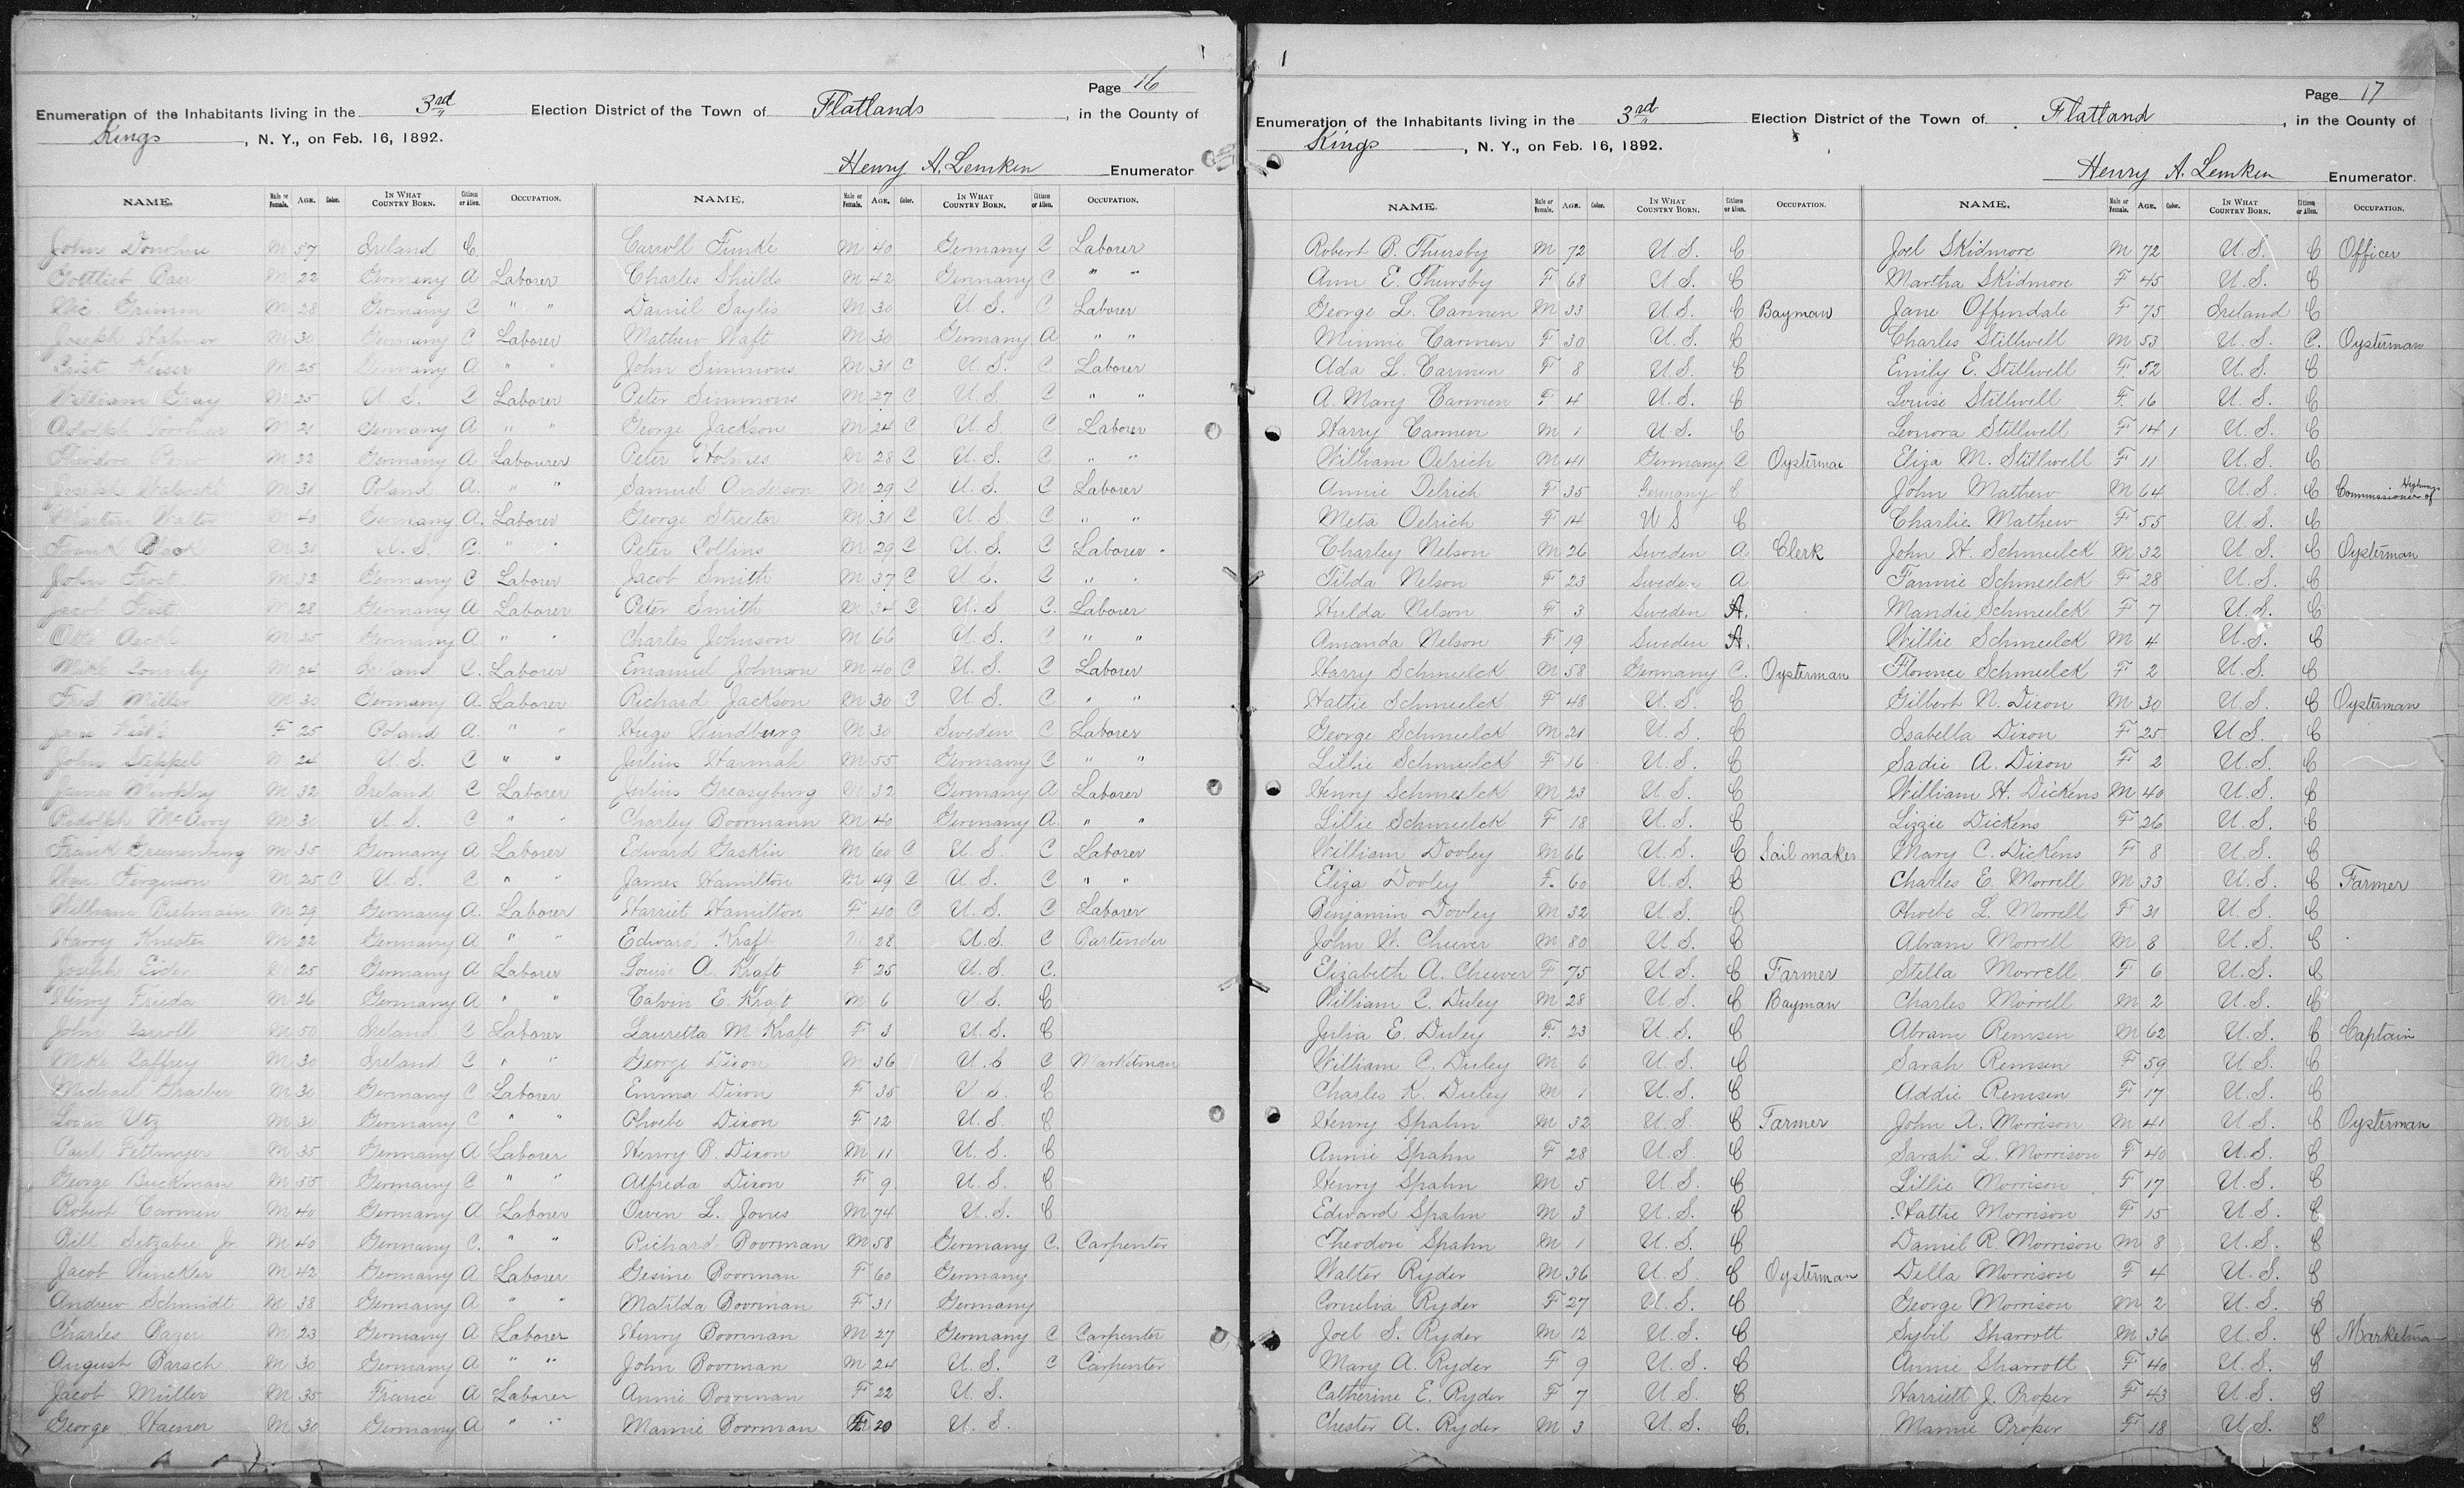 Page 16
Enumeration of the Inhabitants living in the 3rd Election District of the Town of Flatlands, in the County of
Kings, N. Y., on Feb. 16, 1892.
Henry A. Lemken Enumerator
NAME. Male or Female. AGE. Color. IN WHAT COUNTRY BORN. Citizen or Alien. OCCUPATION.
John Donohue M 57 Ireland C
Gottlieb Baer M 22 Germany A Laborer
Nic. Grimm M 28 Germany C " "
Joseph M 30 Germany C Laborer
M 25 Germany A " "
William Gray M 25 U. S. C Laborer
Adolph M 21 Germany A " "
Theodore M 22 Germany A Labourer
Joseph M 31 Poland A. " "
Martin Walter M 43 Germany A. Laborer
Frank M 31 U. S. C. " "
John Frost M 32 Germany C Laborer
Jacob M 28 Germany A Laborer
Otto M 25 Germany A. " "
Mike M 24 Ireland C. Laborer
Fred Miller M 30 Germany A. Laborer
Jane F 25 Poland A. " "
John Steppel M 24 U. S. C " "
James Murphy M 32 Ireland C Laborer
Rudolph McAvoy M 31 U. S. C " "
Frank Greenenburg M 35 Germany A Laborer
Wm. Ferguson M 25 C U. S. C " "
William M 29 Germany A. Laborer
Harry Knester M 22 Germany A " "
Joseph Eider M 25 Germany A Laborer
Henry Frieda M 26 Germany A " "
John Carroll M 50 Ireland C Laborer
Mike Caffrey M 30 Ireland C " "
Michael Graeber M 30 Germany C Laborer
Louis Utz M 30 Germany C " "
Paul Fettinger M 35 Germany A Laborer
George Buckman M 55 Germany C " "
Robert Carmen M 40 Germany A Laborer
Bill Setzabee Jr M 40 Germany C. " "
Jacob Winckler M 42 Germany A Laborer
Andrew Schmidt M 38 Germany A " "
Charles Bager M 23 Germany A Laborer
August Barsch M 30 Germany A " "
Jacob Müller M 35 France A Laborer
George Haener M 30 Germany A " "
NAME. Male or Female. AGE. Color. IN WHAT COUNTRY BORN. Citizen or Alien. OCCUPATION.
Carroll Funke M 40 Germany C Laborer
Charles Shields M 42 Germany C " "
Daniel Saylis M 30 U. S. C Laborer
Mathew Haft M 30 Germany A " "
John Simmons M 31 C U. S. C Laborer
Peter Simmons M 27 C U. S. C " "
George Jackson M 24 C U. S. C Laborer
Peter Holmes M 28 C U. S. C " "
Samuel Anderson M 29 C U. S. C Laborer
George Streeter M 31 C U. S. C " "
Peter Collins M 29 C U. S. C Laborer
Jacob Smith M 37 C U. S. C " "
Peter Smith M 34 C U. S C. Laborer
Charles Johnson M 66 U. S. C " "
Emanuel Johnson M 40 C U. S. C Laborer
Richard Jackson M 30 C U. S. C " "
Hugo Windburg M 30 Sweden C Laborer
Julius Hannah M 55 Germany C " "
Julius Greasyburg M 32 Germany A Laborer
Charley Boormann M 40 Germany A. " "
Edward Gaskin M 60 C U. S. C Laborer
James Hamilton M 49 C U. S. C " "
Harriet Hamilton F 40 C U. S. C Laborer
Edward Kraft M 28 U. S. C Bartender
Louise A. Kraft F 25 U. S. C.
Calvin E. Kraft M 6 U. S. C
Lauretta M. Kraft F 3 U. S. C
George Dixon M 36 U. S C Marketman
Emma Dixon F 35 U. S. C
Phoebe Dixon F 12 U. S. C
Henry B. Dixon M 11 U. S. C
Alfreda Dixon F 9 U. S. C
Owen L. Jones M 74 U. S. C
Richard Boorman M 58 Germany C. Carpenter
Gesine Boorman F 60 Germany
Matilda Boorman F 31 Germany
Henry Boorman M 27 Germany C Carpenter
John Boorman M 24 U. S. C Carpenter
Annie Boorman F 22 U. S.
Mamie Boorman F 20 U. S.
Page 17
Enumeration of the Inhabitants living in the 3rd Election District of the Town of Flatland, in the County of
Kings, N. Y., on Feb. 16, 1892.
Henry A. Lemken Enumerator.
NAME. Male or Female. AGE. Color. IN WHAT COUNTRY BORN. Citizen or Alien. OCCUPATION.
Robert B. Thursby M 72 U. S. C
Ann E. Thursby F 68 U. S. C
George L. Carmen M 33 U. S. C Bayman
Minnie Carmen F 30 U. S. C
Ada L. Carmen F 8 U. S. C
A. Mary Carmen F 4 U. S. C
Harry Carmen M 1 U. S. C
William Oelrich M 41 Germany C Oysterma
Annie Oelrich F 35 Germany C
Meta Oelrich F 14 U S C
Charley Nelson M 26 Sweden A Clerk
Tilda Nelson F 23 Sweden A
Hulda Nelson F 3 Sweden A.
Amanda Nelson F 19 Sweden A.
Harry Schmeelck M 58 Germany C. Oysterman
Hattie Schmeelck F 48 U. S. C
George Schmeelck M 21 U. S. C
Lillie Schmeelck F 16 U. S. C
Henry Schmeelck M 23 U. S. C
Lillie Schmeelck F 18 U. S. C
William Dooley M 66 U. S. C Sail maker
Eliza Dooley F. 60 U. S. C
Benjamin Dooley M 32 U. S. C
John W. Cheever M 80 U. S. C
Elizabeth A. Cheever F 75 U. S. C Farmer
William C. Duley M 28 U. S. C Bayman
Julia E. Duley F. 23 U. S. C
William C. Duley M 6 U. S. C
Charles K. Duley M 1 U. S. C
Henry Spahn M 32 U. S. C Farmer
Annie Spahn F 28 U. S. C
Henry Spahn M 5 U. S. C
Edward Spahn M 3 U. S. C
Theodore Spahn M 1 U. S. C
Walter Ryder M 36 U. S. C Oysterman
Cornelia Ryder F 27 U. S. C
Joel S. Ryder M 12 U. S. C
Mary A. Ryder F 9 U. S. C
Catherine E. Ryder F 7 U. S. C
Chester A. Ryder M 3 U. S. C.
NAME. Male or Female. AGE. Color. IN WHAT COUNTRY BORN. Citizen or Alien. OCCUPATION.
Joel Skidmore M 72 U. S. C Officer
Martha Skidmore F 45 U. S. C
Jane Offendale F 75 Ireland C
Charles Stillwell M 53 U. S. C. Oysterman
Emily E. Stillwell F 52 U. S. C
Louise Stillwell F. 16 U. S. C
Leonora Stillwell F 14 U. S. C
Eliza M. Stillwell F 11 U. S. C
John Mathew M 64 U. S. C Commissioner of Highway
Charlie Mathew F 55 U. S. C
John H. Schmeelck M 32 U. S. C Oysterman
Fannie Schmeelck F 28 U. S. C
Mandie Schmeelck F 7 U. S. C
Willie Schmeelck M 4 U. S. C
Florence Schmeelck F 2 U. S. C
Gilbert N. Dixon M 30 U. S. C Oysterman
Isabella Dixon F 25 U S. C
Sadie A. Dixon F 2 U. S. C
William H. Dickens M 40 U. S. C
Lizzie Dickens F 26 U. S. C
Mary C. Dickens F 8 U. S. C
Charles E. Morrell M 33 U. S. C Farmer
Phoebe L. Morrell F 31 U. S. C
Abram Morrell M 8 U. S. C
Stella Morrell F 6 U. S. C
Charles Morrell M 2 U. S. C
Abram Remsen M 62 U. S. C Captain
Sarah Remsen F 59 U S. C
Addie Remsen F 17 U. S. C
John A. Morrison M 41 U. S. C Oysterman
Sarah L. Morrison F 40 U. S. C
Lillie Morrison F 17 U. S. C
Hattie Morrison F 15 U. S. C
Daniel R. Morrison M 8 U. S. C
Della Morrison F 4 U. S. C
George Morrison M 2 U. S. C
Sybil Sharrott M 36 U. S. C Marketman
Annie Sharrott F 40 U. S. C
Harriett J. Proper F 43 U. S. C
Mamie Proper F 18 U. S. C